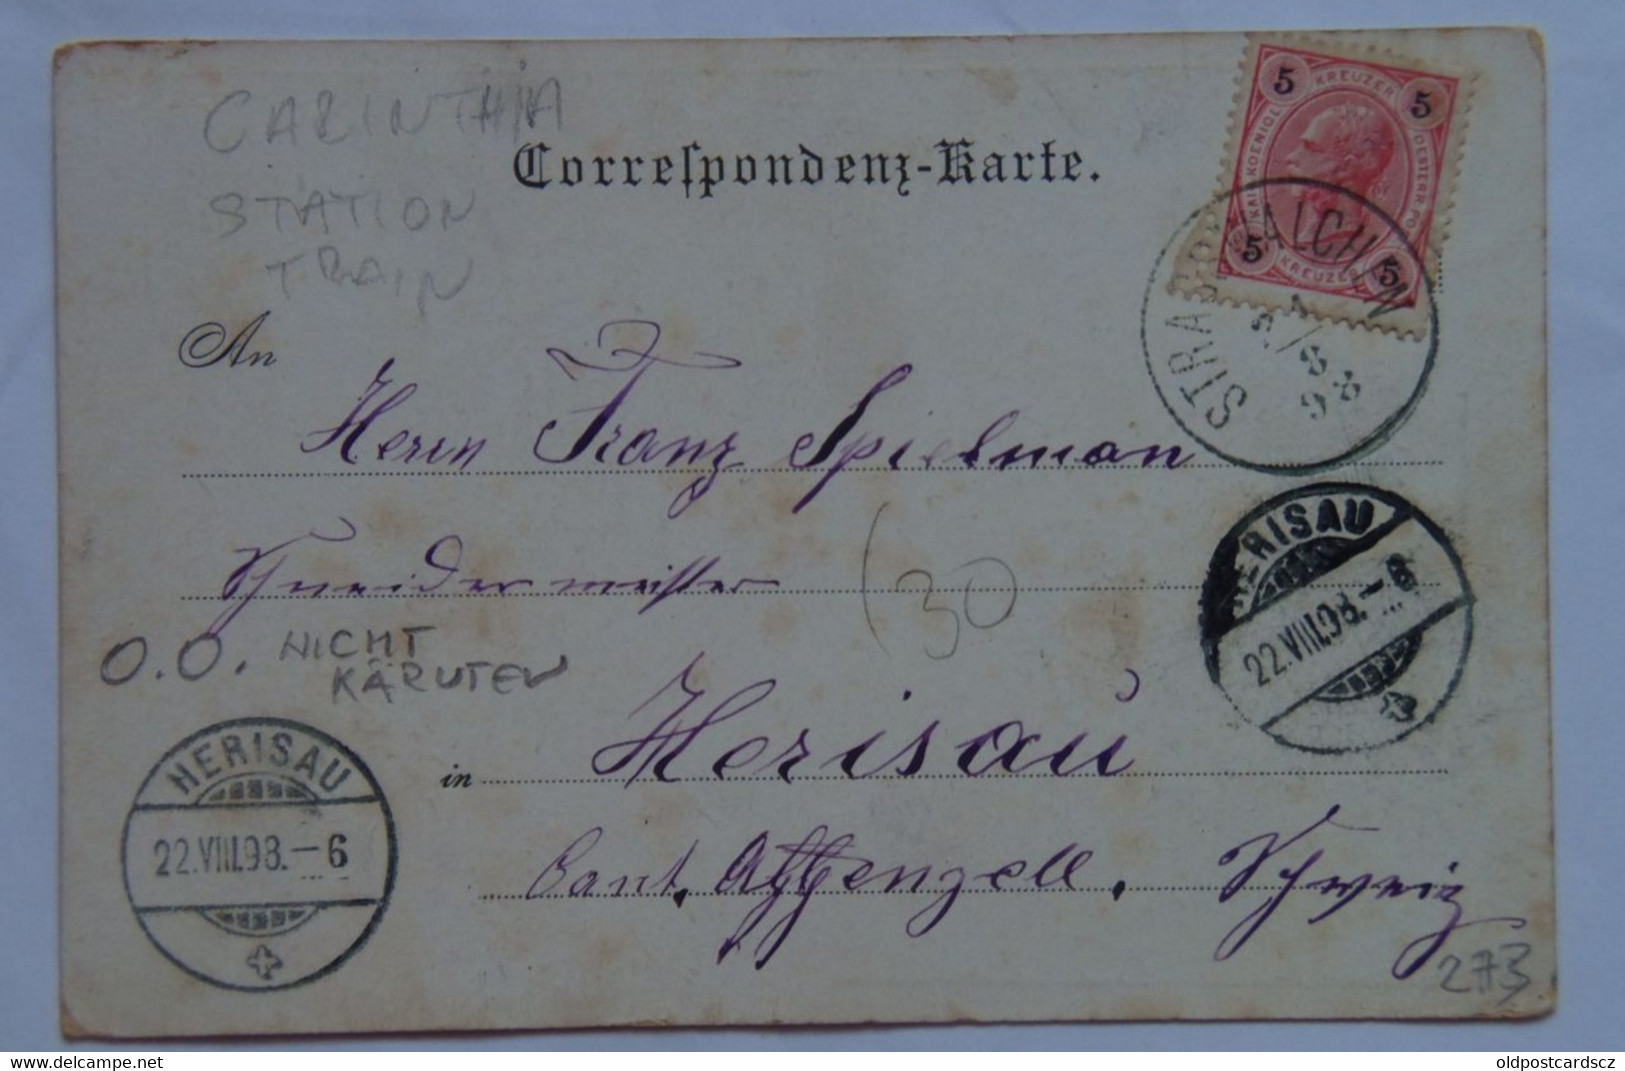 CARINTHIA
STATION
TRAIN
Correspondenz-Karte.
5 KREUZER 5
KAIS. KOENIGL. OESTERR. PO
5 KREUZER 5
STRASSWALCHEN
8
98
An Herrn Franz Spielman
Schneidermeister
(30
HERISAU
22.VIII.98.-6
O.O. NICHT
KÄRNTEN
HERISAU
22.VIII.98.-6
in Herisau
Cant. Appenzell. Schweiz
273
delcampe.net
oldpostcardscz